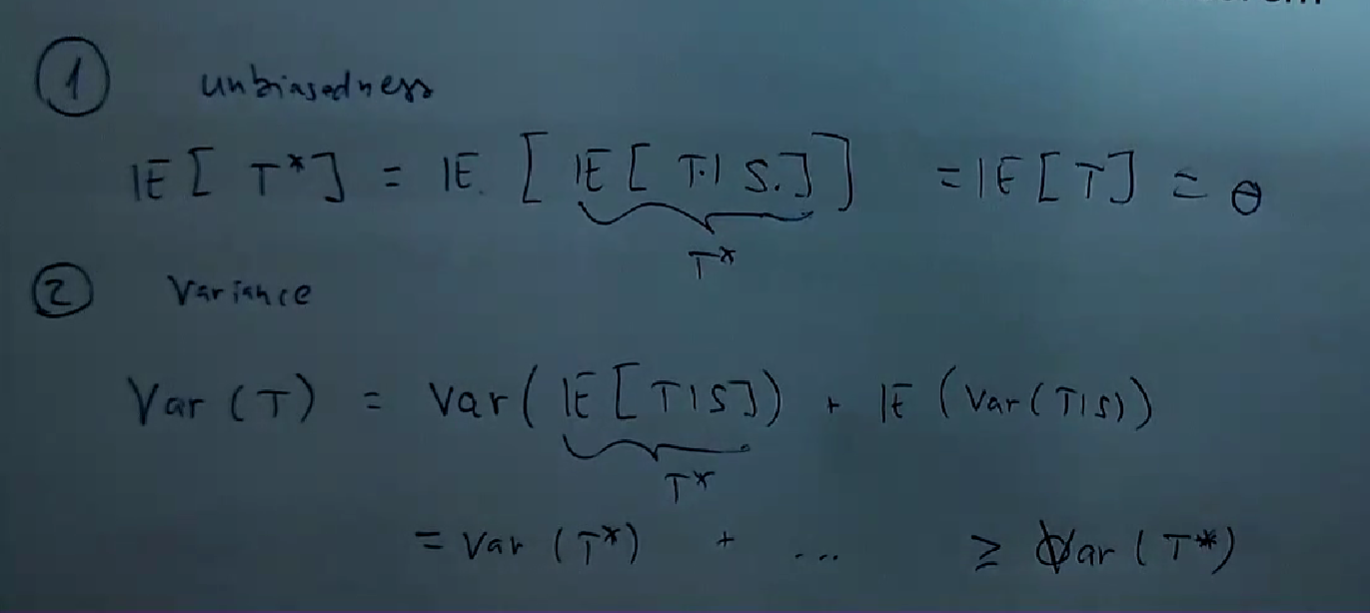 ① unbiasedness
𝔼[T*] = 𝔼.[𝔼[T.|S.]] = 𝔼[T] = θ
T*
② Variance
Var(T) = Var(𝔼[T|S]) + 𝔼(Var(T|S))
T*
= Var(T*) + ... ≥ Var(T*)